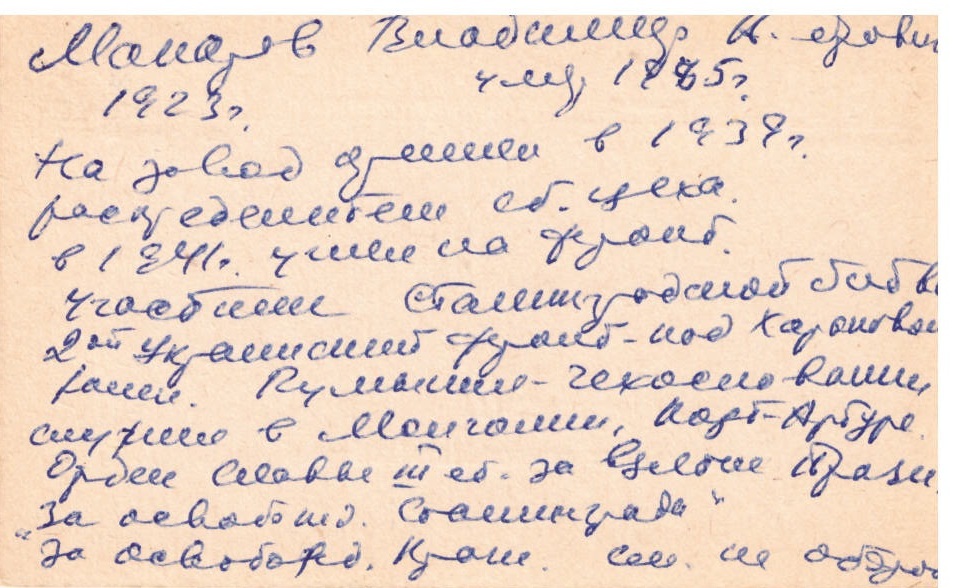 Макаров Владимир
1923г. ум. 1985г.
На завод пришел в 1939г.
распределителем сб. цеха.
в 1941г. ушел на фронт.
участник Сталинградской битвы
2ой Украинский фронт - под Харьковом
ранен. Румыния - Чехословакия
служил в Монголии, Порт-Артуре.
Орден Славы III ст. за взятие Праги.
"За освобожд. Сталинграда"
"За освобожд. Праги.